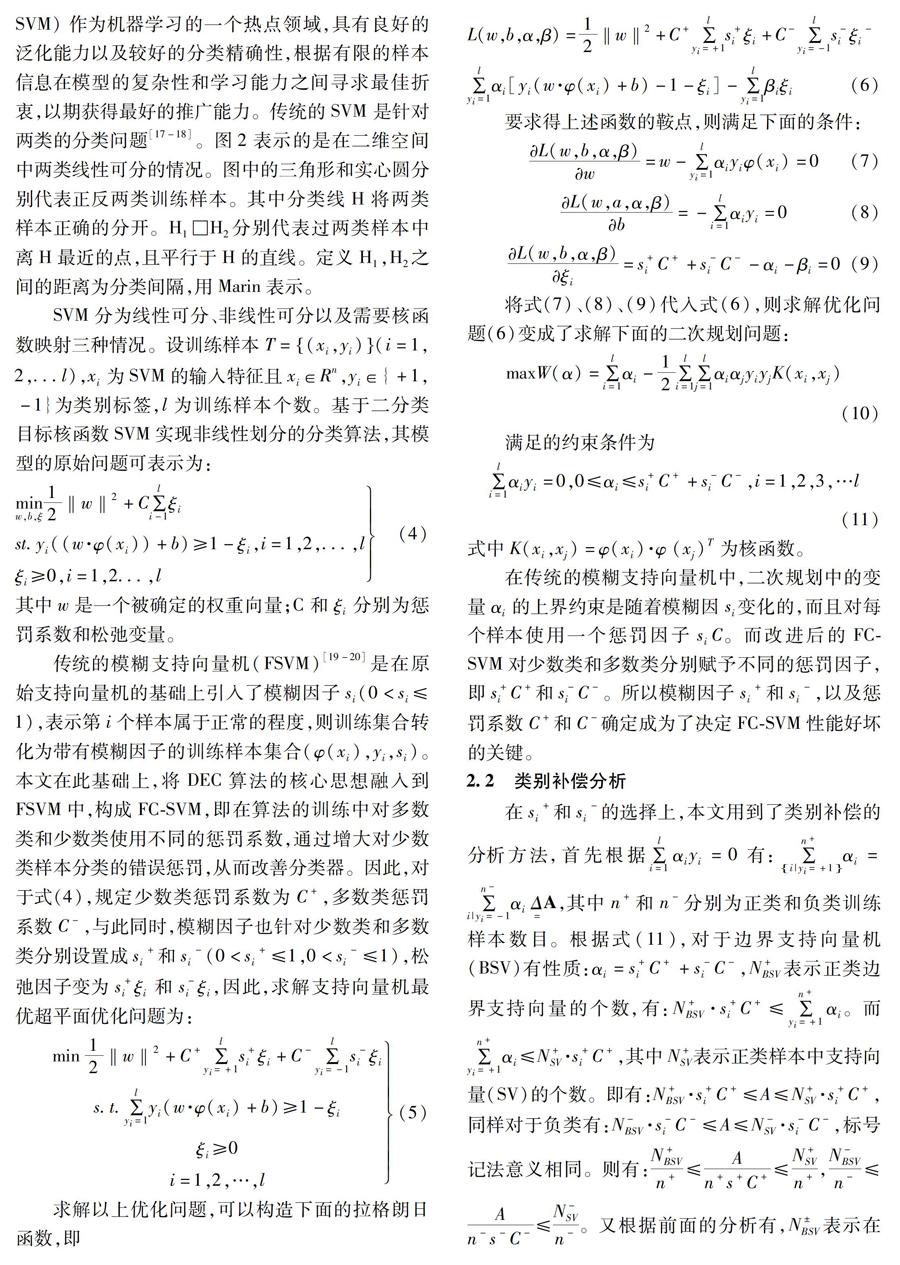 SVM) 作为机器学习的一个热点领域,具有良好的
泛化能力以及较好的分类精确性,根据有限的样本
信息在模型的复杂性和学习能力之间寻求最佳折
衷,以期获得最好的推广能力。传统的 SVM 是针对
两类的分类问题[17-18]。图 2 表示的是在二维空间
中两类线性可分的情况。图中的三角形和实心圆分
别代表正反两类训练样本。其中分类线 H 将两类
样本正确的分开。H₁□H₂分别代表过两类样本中
离 H 最近的点,且平行于 H 的直线。定义 H₁,H₂之
间的距离为分类间隔,用 Marin 表示。
SVM 分为线性可分、非线性可分以及需要核函
数映射三种情况。设训练样本 T={(xᵢ,yᵢ)}(i=1,
2,...l),xᵢ 为 SVM 的输入特征且 xᵢ∈Rⁿ,yᵢ∈{+1,
-1}为类别标签,l 为训练样本个数。基于二分类
目标核函数 SVM 实现非线性划分的分类算法,其模
型的原始问题可表示为:
min_{w,b,ξ} 1/2 ‖w‖² + C∑_{i-1}^{l} ξᵢ
st. yᵢ((w·φ(xᵢ))+b)≥1-ξᵢ,i=1,2,...,l (4)
ξᵢ≥0,i=1,2...,l
其中 w 是一个被确定的权重向量;C 和 ξᵢ 分别为惩
罚系数和松弛变量。
传统的模糊支持向量机(FSVM)[19-20]是在原
始支持向量机的基础上引入了模糊因子 sᵢ(0<sᵢ≤
1),表示第 i 个样本属于正常的程度,则训练集合转
化为带有模糊因子的训练样本集合(φ(xᵢ),yᵢ,sᵢ)。
本文在此基础上,将 DEC 算法的核心思想融入到
FSVM 中,构成 FC-SVM,即在算法的训练中对多数
类和少数类使用不同的惩罚系数,通过增大对少数
类样本分类的错误惩罚,从而改善分类器。因此,对
于式(4),规定少数类惩罚系数为 C⁺,多数类惩罚
系数 C⁻,与此同时,模糊因子也针对少数类和多数
类分别设置成 sᵢ⁺和 sᵢ⁻(0<sᵢ⁺≤1,0<sᵢ⁻≤1),松
弛因子变为 sᵢ⁺ξᵢ 和 sᵢ⁻ξᵢ,因此,求解支持向量机最
优超平面优化问题为:
min 1/2 ‖w‖² + C⁺ ∑_{yᵢ=+1}^{l} sᵢ⁺ξᵢ + C⁻ ∑_{yᵢ=-1}^{l} sᵢ⁻ξᵢ
s.t. ∑_{yᵢ=1}^{l} yᵢ(w·φ(xᵢ)+b)≥1-ξᵢ (5)
ξᵢ≥0
i=1,2,…,l
求解以上优化问题,可以构造下面的拉格朗日
函数,即
L(w,b,α,β) = 1/2 ‖w‖² + C⁺ ∑_{yᵢ=+1}^{l} sᵢ⁺ξᵢ + C⁻ ∑_{yᵢ=-1}^{l} sᵢ⁻ξᵢ -
∑_{yᵢ=1}^{l} αᵢ[yᵢ(w·φ(xᵢ)+b)-1-ξᵢ] - ∑_{yᵢ=1}^{l} βᵢξᵢ (6)
要求得上述函数的鞍点,则满足下面的条件:
∂L(w,b,α,β)/∂w = w - ∑_{yᵢ=1}^{l} αᵢyᵢφ(xᵢ) = 0 (7)
∂L(w,a,α,β)/∂b = -∑_{i=1}^{l} αᵢyᵢ = 0 (8)
∂L(w,b,α,β)/∂ξᵢ = sᵢ⁺C⁺ + sᵢ⁻C⁻ - αᵢ - βᵢ = 0 (9)
将式(7)、(8)、(9)代入式(6),则求解优化问
题(6)变成了求解下面的二次规划问题:
maxW(α) = ∑_{i=1}^{l} αᵢ - 1/2 ∑_{i=1}^{l} ∑_{j=1}^{l} αᵢαⱼyᵢyⱼK(xᵢ,xⱼ)
(10)
满足的约束条件为
∑_{i=1}^{l} αᵢyᵢ = 0,0≤αᵢ≤sᵢ⁺C⁺ + sᵢ⁻C⁻,i=1,2,3,…l
(11)
式中 K(xᵢ,xⱼ)=φ(xᵢ)·φ(xⱼ)ᵀ 为核函数。
在传统的模糊支持向量机中,二次规划中的变
量 αᵢ 的上界约束是随着模糊因 sᵢ变化的,而且对每
个样本使用一个惩罚因子 sᵢC。而改进后的 FC-
SVM 对少数类和多数类分别赋予不同的惩罚因子,
即 sᵢ⁺C⁺和 sᵢ⁻C⁻。所以模糊因子 sᵢ⁺和 sᵢ⁻,以及惩
罚系数 C⁺和 C⁻确定成为了决定 FC-SVM 性能好坏
的关键。
2.2 类别补偿分析
在 sᵢ⁺和 sᵢ⁻的选择上,本文用到了类别补偿的
分析方法,首先根据 ∑_{i=1}^{l} αᵢyᵢ = 0 有: ∑_{{i|yᵢ=+1}}^{n+} αᵢ =
∑_{i|yᵢ=-1}^{n-} αᵢ ΔA,其中 n⁺和 n⁻分别为正类和负类训练
样本数目。根据式(11),对于边界支持向量机
(BSV)有性质:αᵢ = sᵢ⁺C⁺ + sᵢ⁻C⁻,N⁺_{BSV}表示正类边
界支持向量的个数,有:N⁺_{BSV}·sᵢ⁺C⁺ ≤ ∑_{yᵢ=+1}^{n+} αᵢ。而
∑_{yᵢ=+1}^{n+} αᵢ≤N⁺_{SV}·sᵢ⁺C⁺,其中 N⁺_{SV}表示正类样本中支持向
量(SV)的个数。即有:N⁺_{BSV}·sᵢ⁺C⁺≤A≤N⁺_{SV}·sᵢ⁺C⁺,
同样对于负类有:N⁻_{BSV}·sᵢ⁻C⁻≤A≤N⁻_{SV}·sᵢ⁻C⁻,标号
记法意义相同。则有:N⁺_{BSV}/n⁺ ≤ A/(n⁺s⁺C⁺) ≤ N⁺_{SV}/n⁺, N⁻_{BSV}/n⁻ ≤
A/(n⁻s⁻C⁻) ≤ N⁻_{SV}/n⁻。又根据前面的分析有,N±_{BSV}表示在